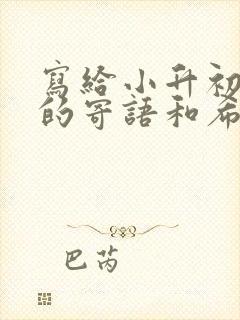 寫給小升初
的寄語和希
巴芮